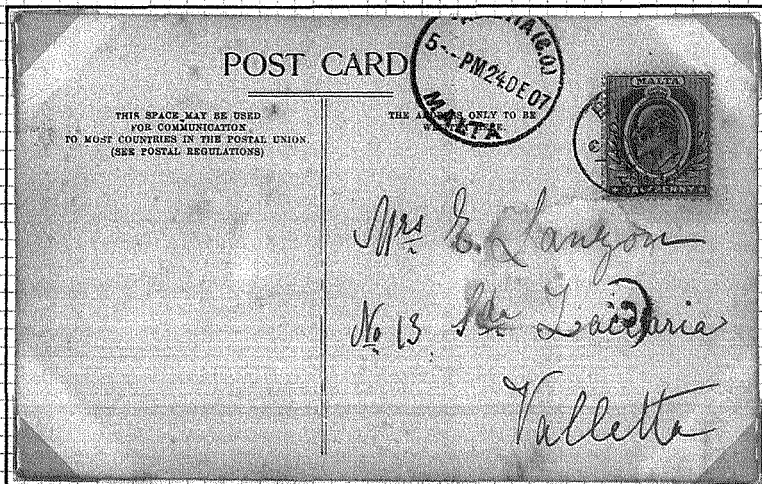 POST CARD
THIS SPACE MAY BE USED
FOR COMMUNICATION
TO MOST COUNTRIES IN THE POSTAL UNION.
(SEE POSTAL REGULATIONS)
THE ADDRESS ONLY TO BE
(G.O.)
5-- PM 24 DE 07
MALTA
MALTA
HALFPENNY
Mrs E. Lanzon
No 13 Sda Zaccaria
Valletta